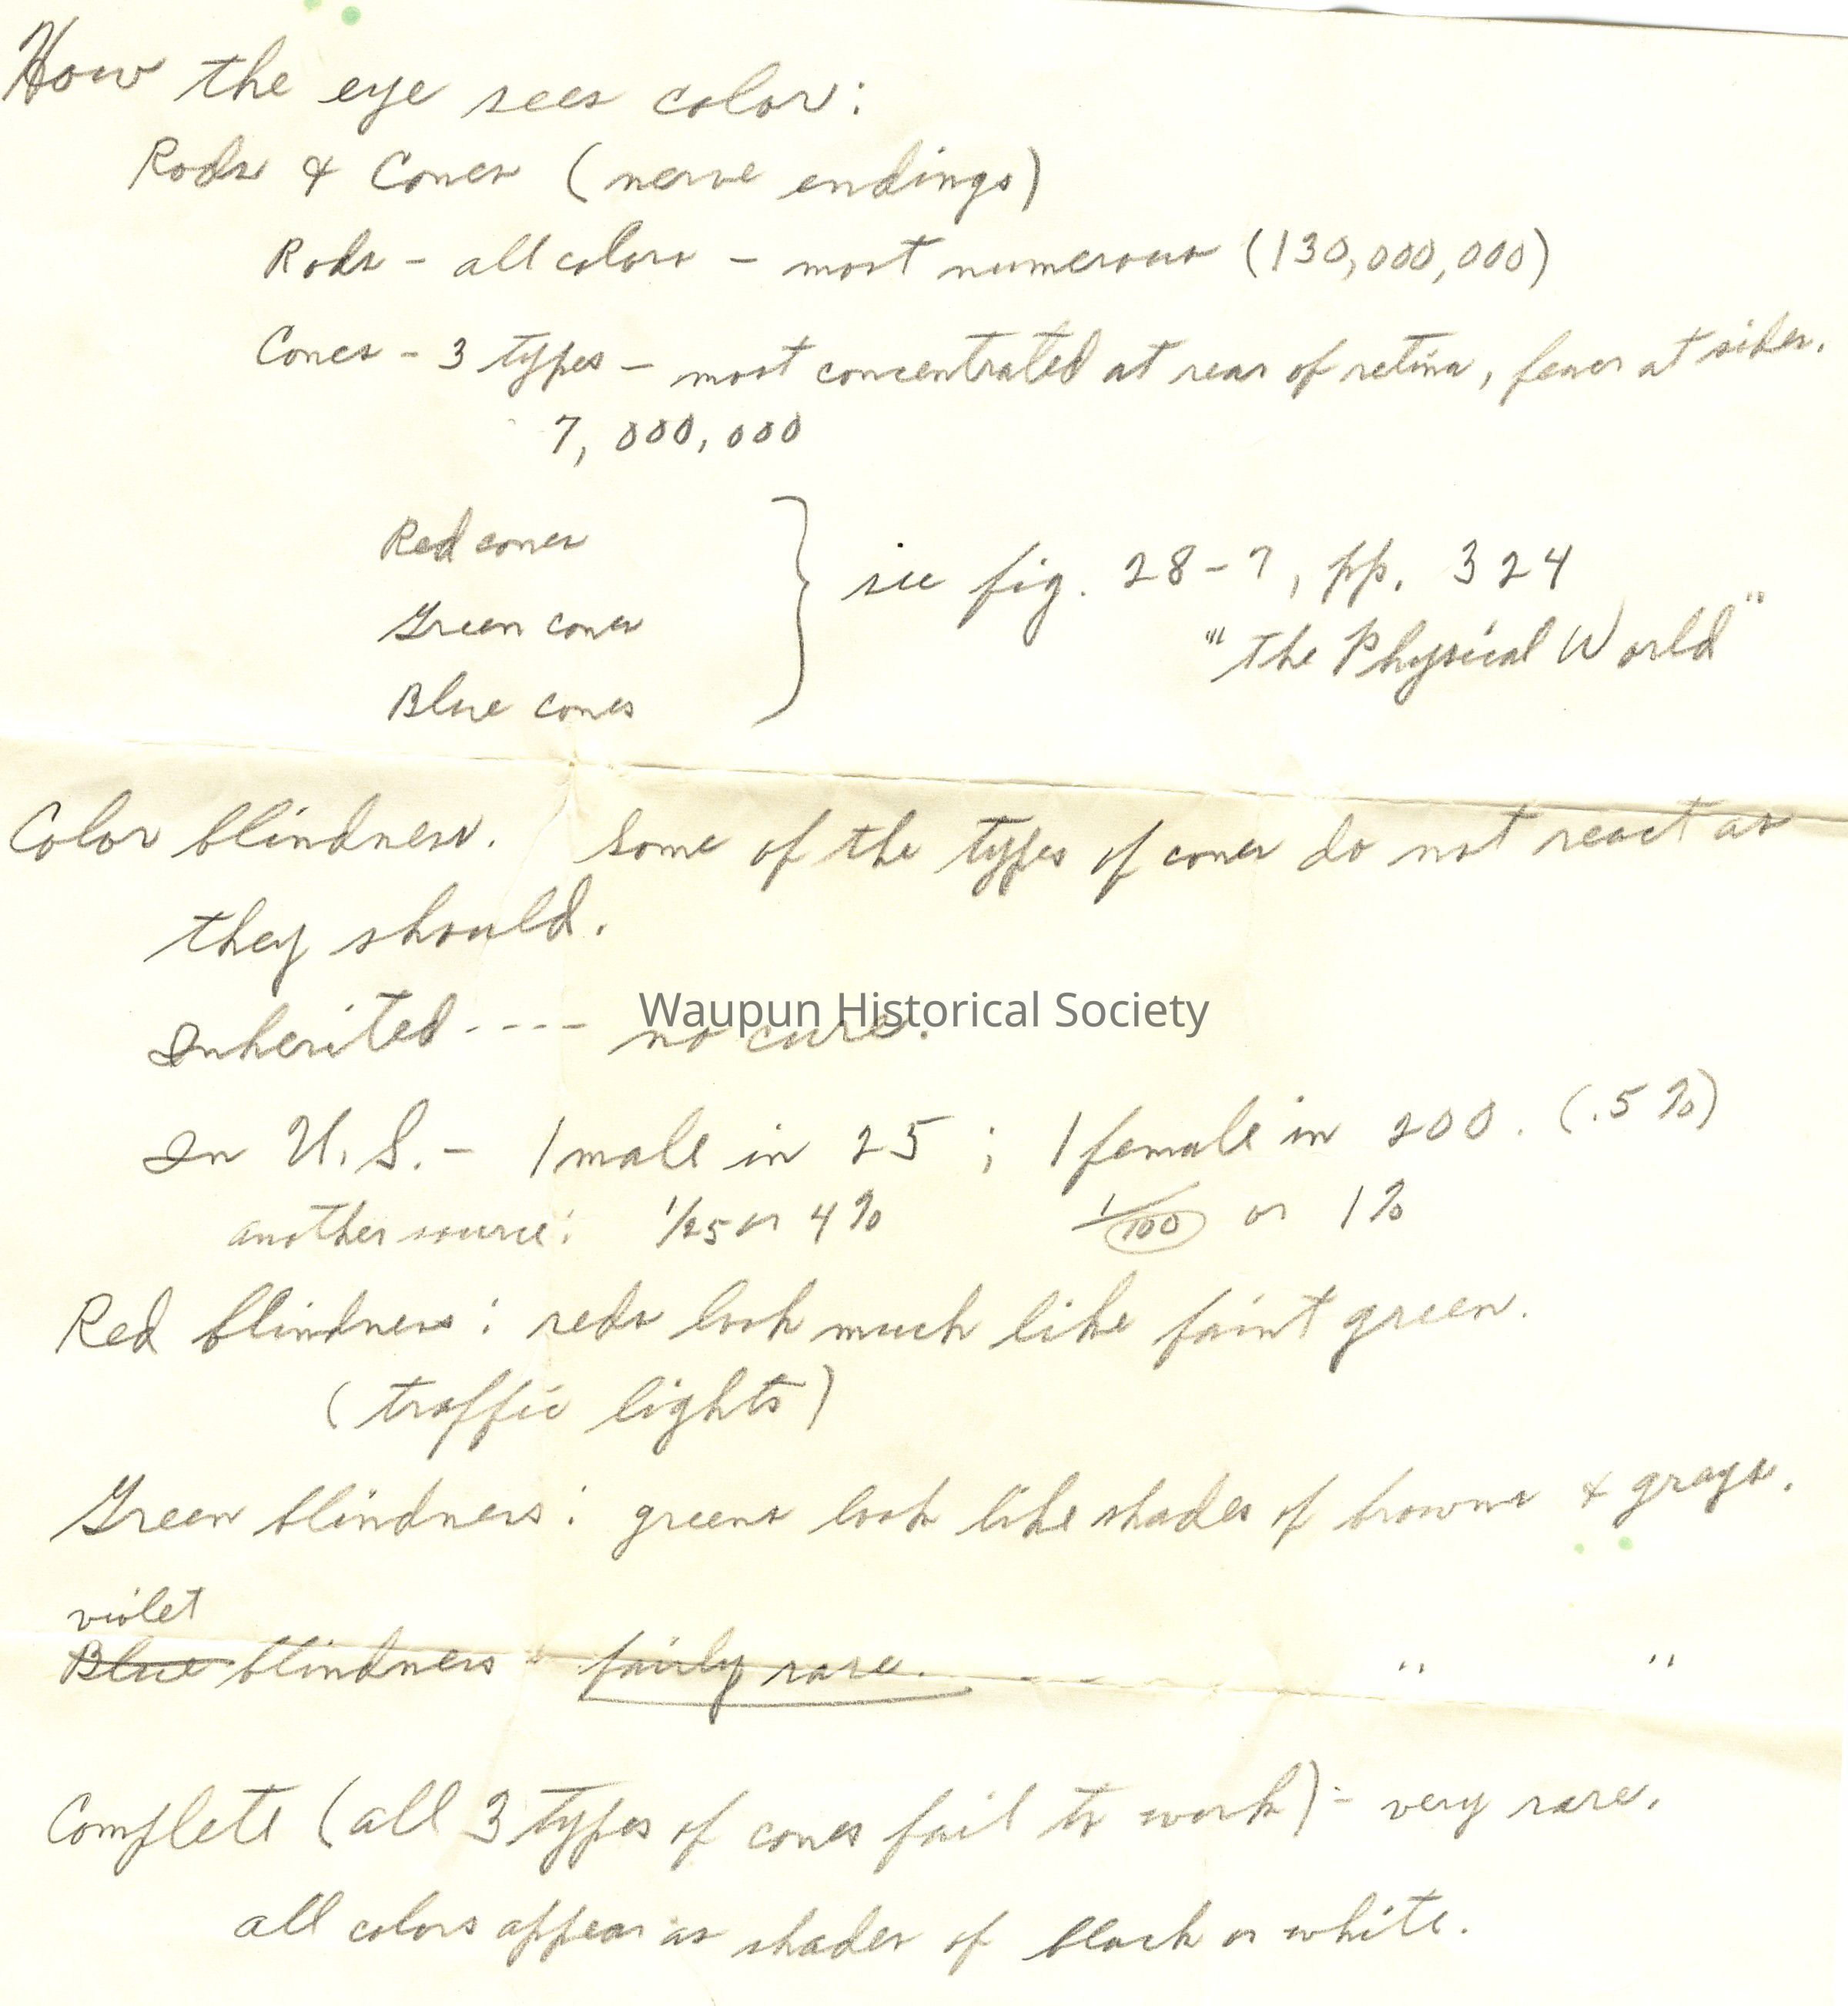 How the eye sees color:
Rods & Cones (nerve endings)
Rods - all colors - most numerous (130,000,000)
Cones - 3 types - most concentrated at rear of retina, fewer at sides.
7,000,000
Red cones
Green cones
Blue cones
see fig. 28-7, pp. 324
"The Physical World"
Color blindness. Some of the types of cones do not react as
they should.
Inherited ---- no cure.
Waupun Historical Society
In U.S. - 1 male in 25; 1 female in 200. (.5%)
another source: 1/25 or 4% 1/100 or 1%
Red blindness: reds look much like faint green.
(traffic lights)
Green blindness: greens look like shades of browns & grays.
violet
Blue blindness " fairly rare. - - - " "
Complete (all 3 types of cones fail to work) - very rare.
all colors appear as shades of black or white.